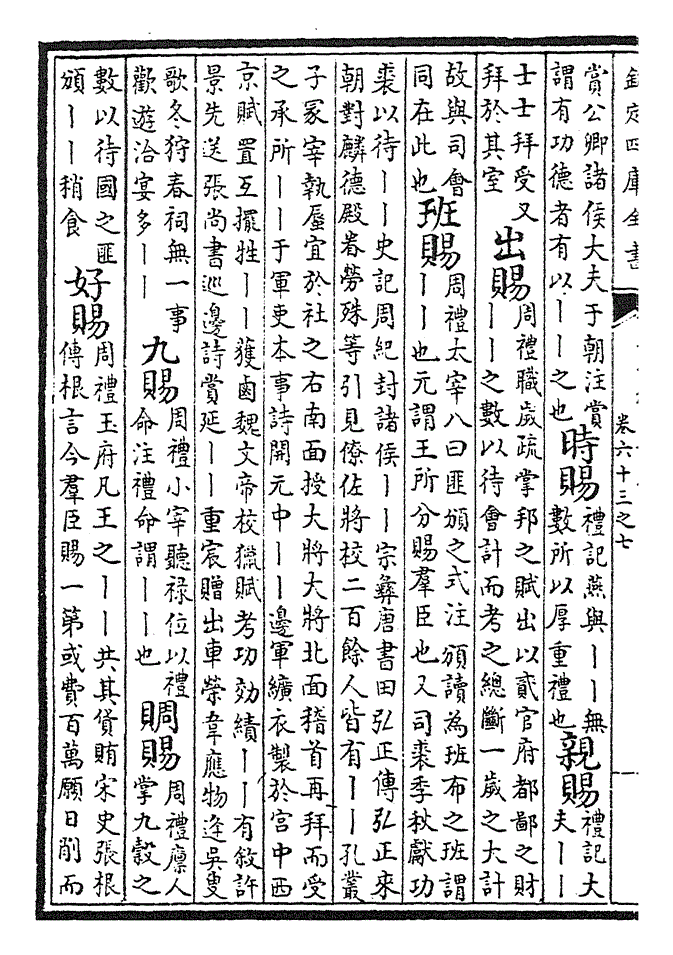 欽定四庫全書
卷六十三之七
賞公卿諸侯大夫于朝注賞
謂有功德者有以丨丨之也
時賜
禮記燕與丨丨無
數所以厚重禮也
親賜
禮記大
夫丨丨
士士拜受又
拜於其室
出賜
周禮職歲疏掌邦之賦出以貳官府都鄙之財
丨丨之數以待會計而考之總斷一歲之大計
故與司會
同在此也
班賜
周禮太宰八曰匪頒之式注頒讀為班布之班謂
丨丨也元謂王所分賜羣臣也又司裘季秋獻功
裘以待丨丨史記周紀封諸侯丨丨宗彝唐書田弘正傳弘正來
朝對麟德殿眷勞殊等引見僚佐將校二百餘人皆有丨丨孔叢
子冢宰執蜃宜於社之右南面授大將大將北面稽首再拜而受
之承所丨丨于軍吏本事詩開元中丨丨邊軍纊衣製於宫中西
京賦置互擺牲丨丨獲鹵魏文帝校獵賦考功効績丨丨有敘許
景先送張尚書巡邊詩賞延丨丨重宸贈出車榮韋應物逢吳叟
歌冬狩春祠無一事
歡遊洽宴多丨丨
九賜
周禮小宰聽祿位以禮
命注禮命謂丨丨也
賙賜
周禮廪人
掌九穀之
數以待國之匪
頒丨丨稍食
好賜
周禮玉府凡王之丨丨共其貨賄宋史張根
傳根言今羣臣賜一第或費百萬願日削而